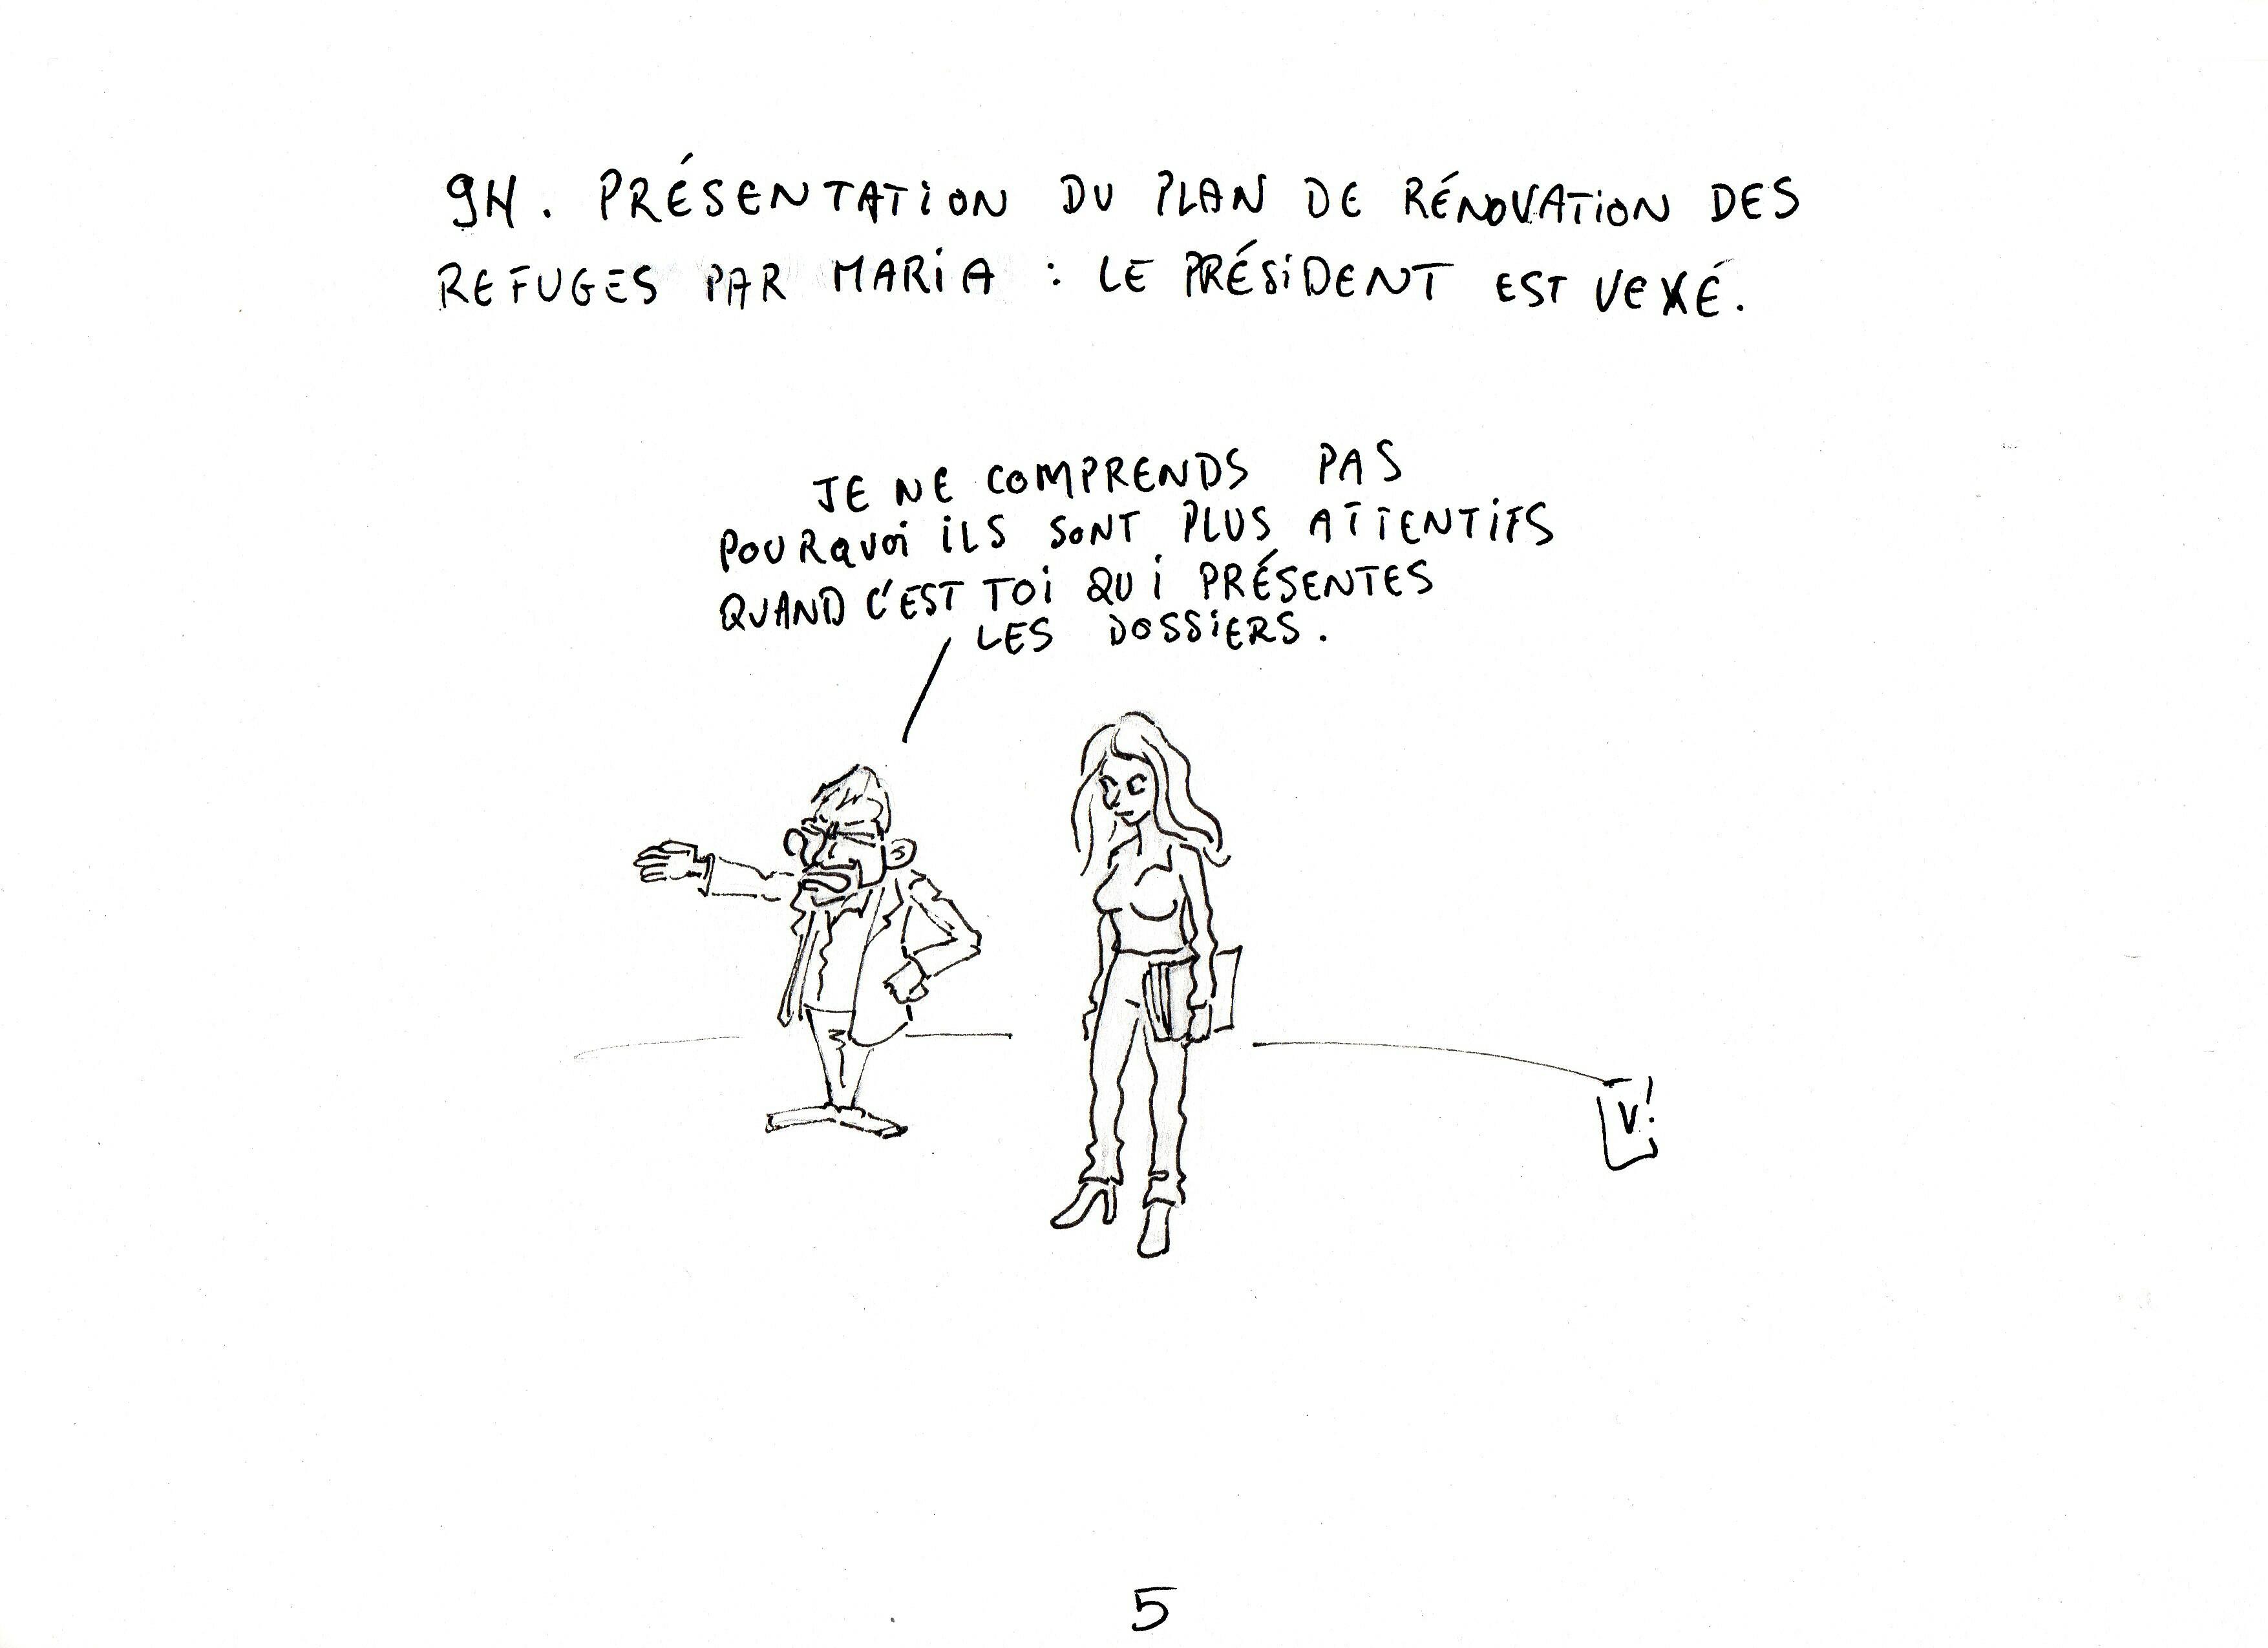 9H. PRÉSENTATION DU PLAN DE RÉNOVATION DES
REFUGES PAR MARIA : LE PRÉSIDENT EST VEXÉ.
JE NE COMPRENDS PAS
POURQUOI ILS SONT PLUS ATTENTIFS
QUAND C'EST TOI QUI PRÉSENTES
LES DOSSIERS.
V!
5